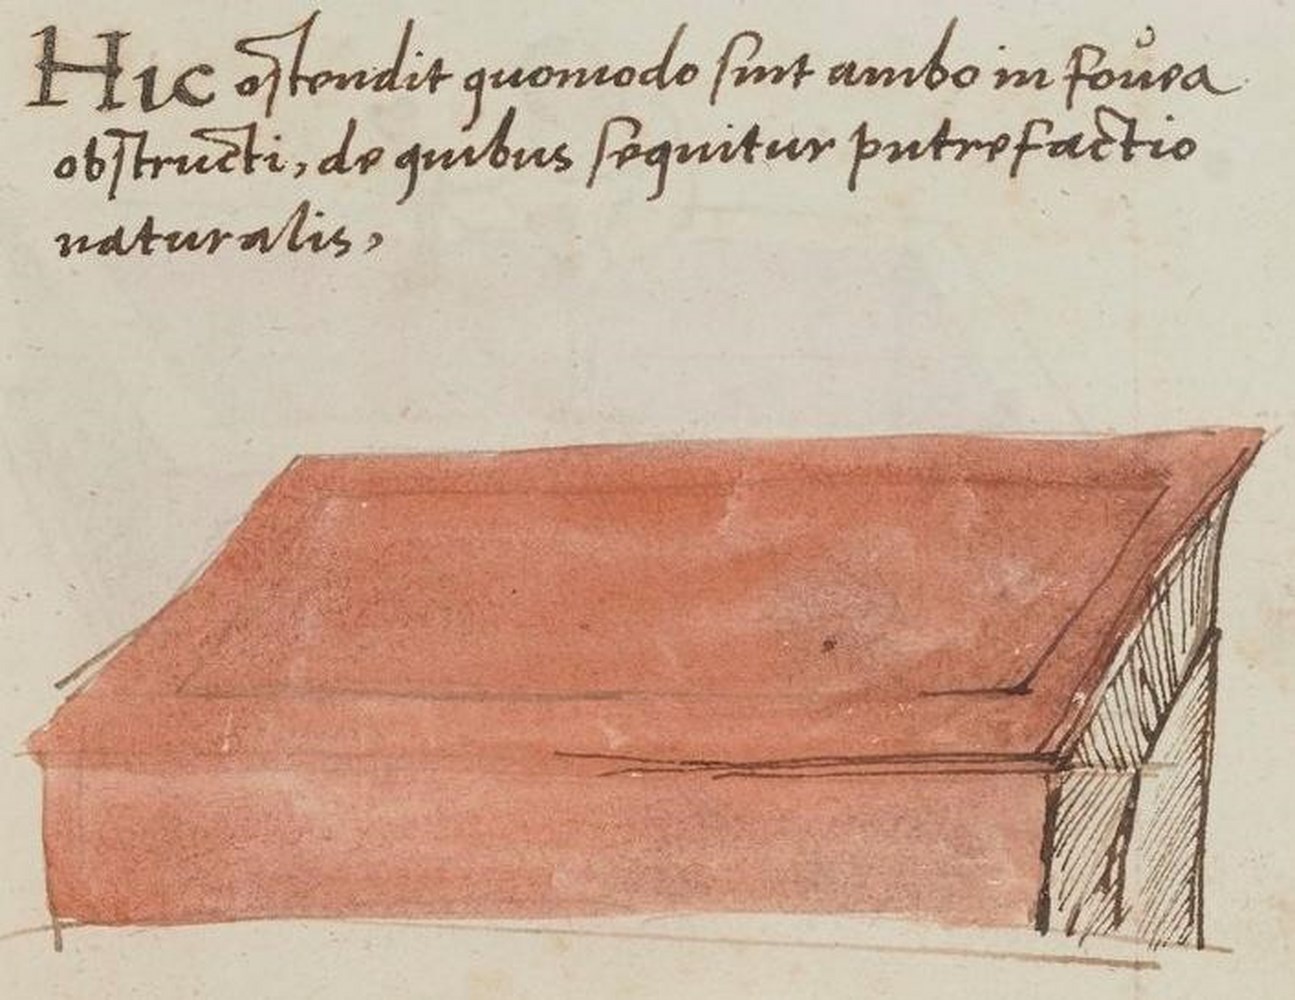 Hic ostendit quomodo sint ambo in fouea
obstructi, de quibus sequitur putrefactio
naturalis,